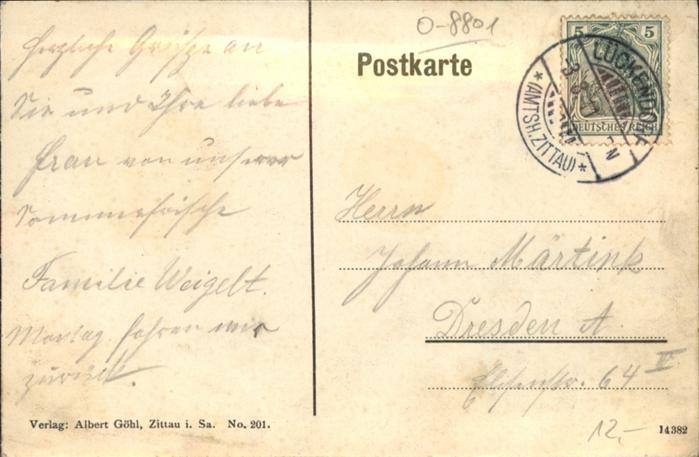 O-8801
Postkarte
5 5
DEUTSCHES REICH
LÜCKENDORF
*(AMTSH. ZITTAU)*
Herzliche Grüsse an
Sie und Ihre liebe
Frau von unserer
Sommerfrische
Familie Weigelt.
Montag fahren wir
zurück.
Herrn
Johann Märtink
Dresden A.
64 IV
12,-
Verlag: Albert Göhl, Zittau i. Sa. No. 201.
14382